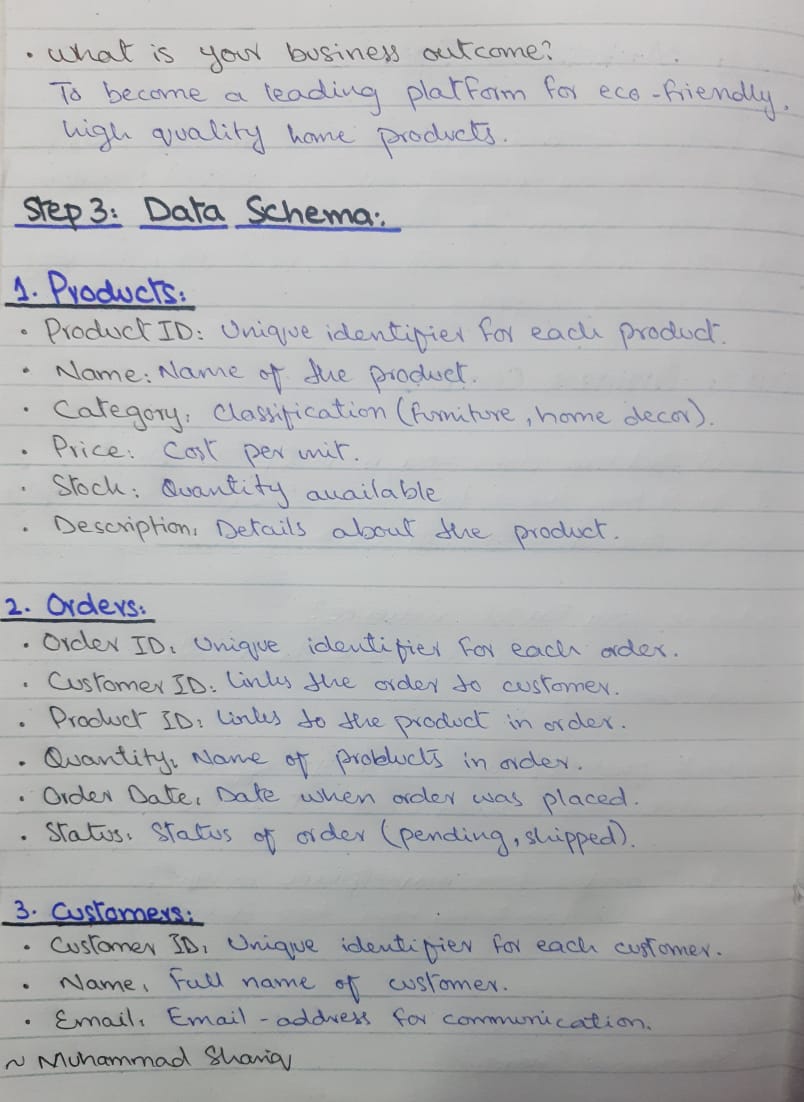 • What is your business outcome?
To become a leading platform for eco-friendly,
high quality home products.
Step 3: Data Schema:
1. Products:
• Product ID: Unique identifier for each product.
• Name: Name of the product.
• Category: Classification (furniture, home decor).
• Price: Cost per unit.
• Stock: Quantity available
• Description: Details about the product.
2. Orders:
• Order ID: Unique identifier for each order.
• Customer ID: Links the order to customer.
• Product ID: Links to the product in order.
• Quantity: Name of products in order.
• Order Date: Date when order was placed.
• Status: Status of order (pending, shipped).
3. Customers:
• Customer ID: Unique identifier for each customer.
• Name: Full name of customer.
• Email: Email-address for communication.
~ Muhammad Shariq